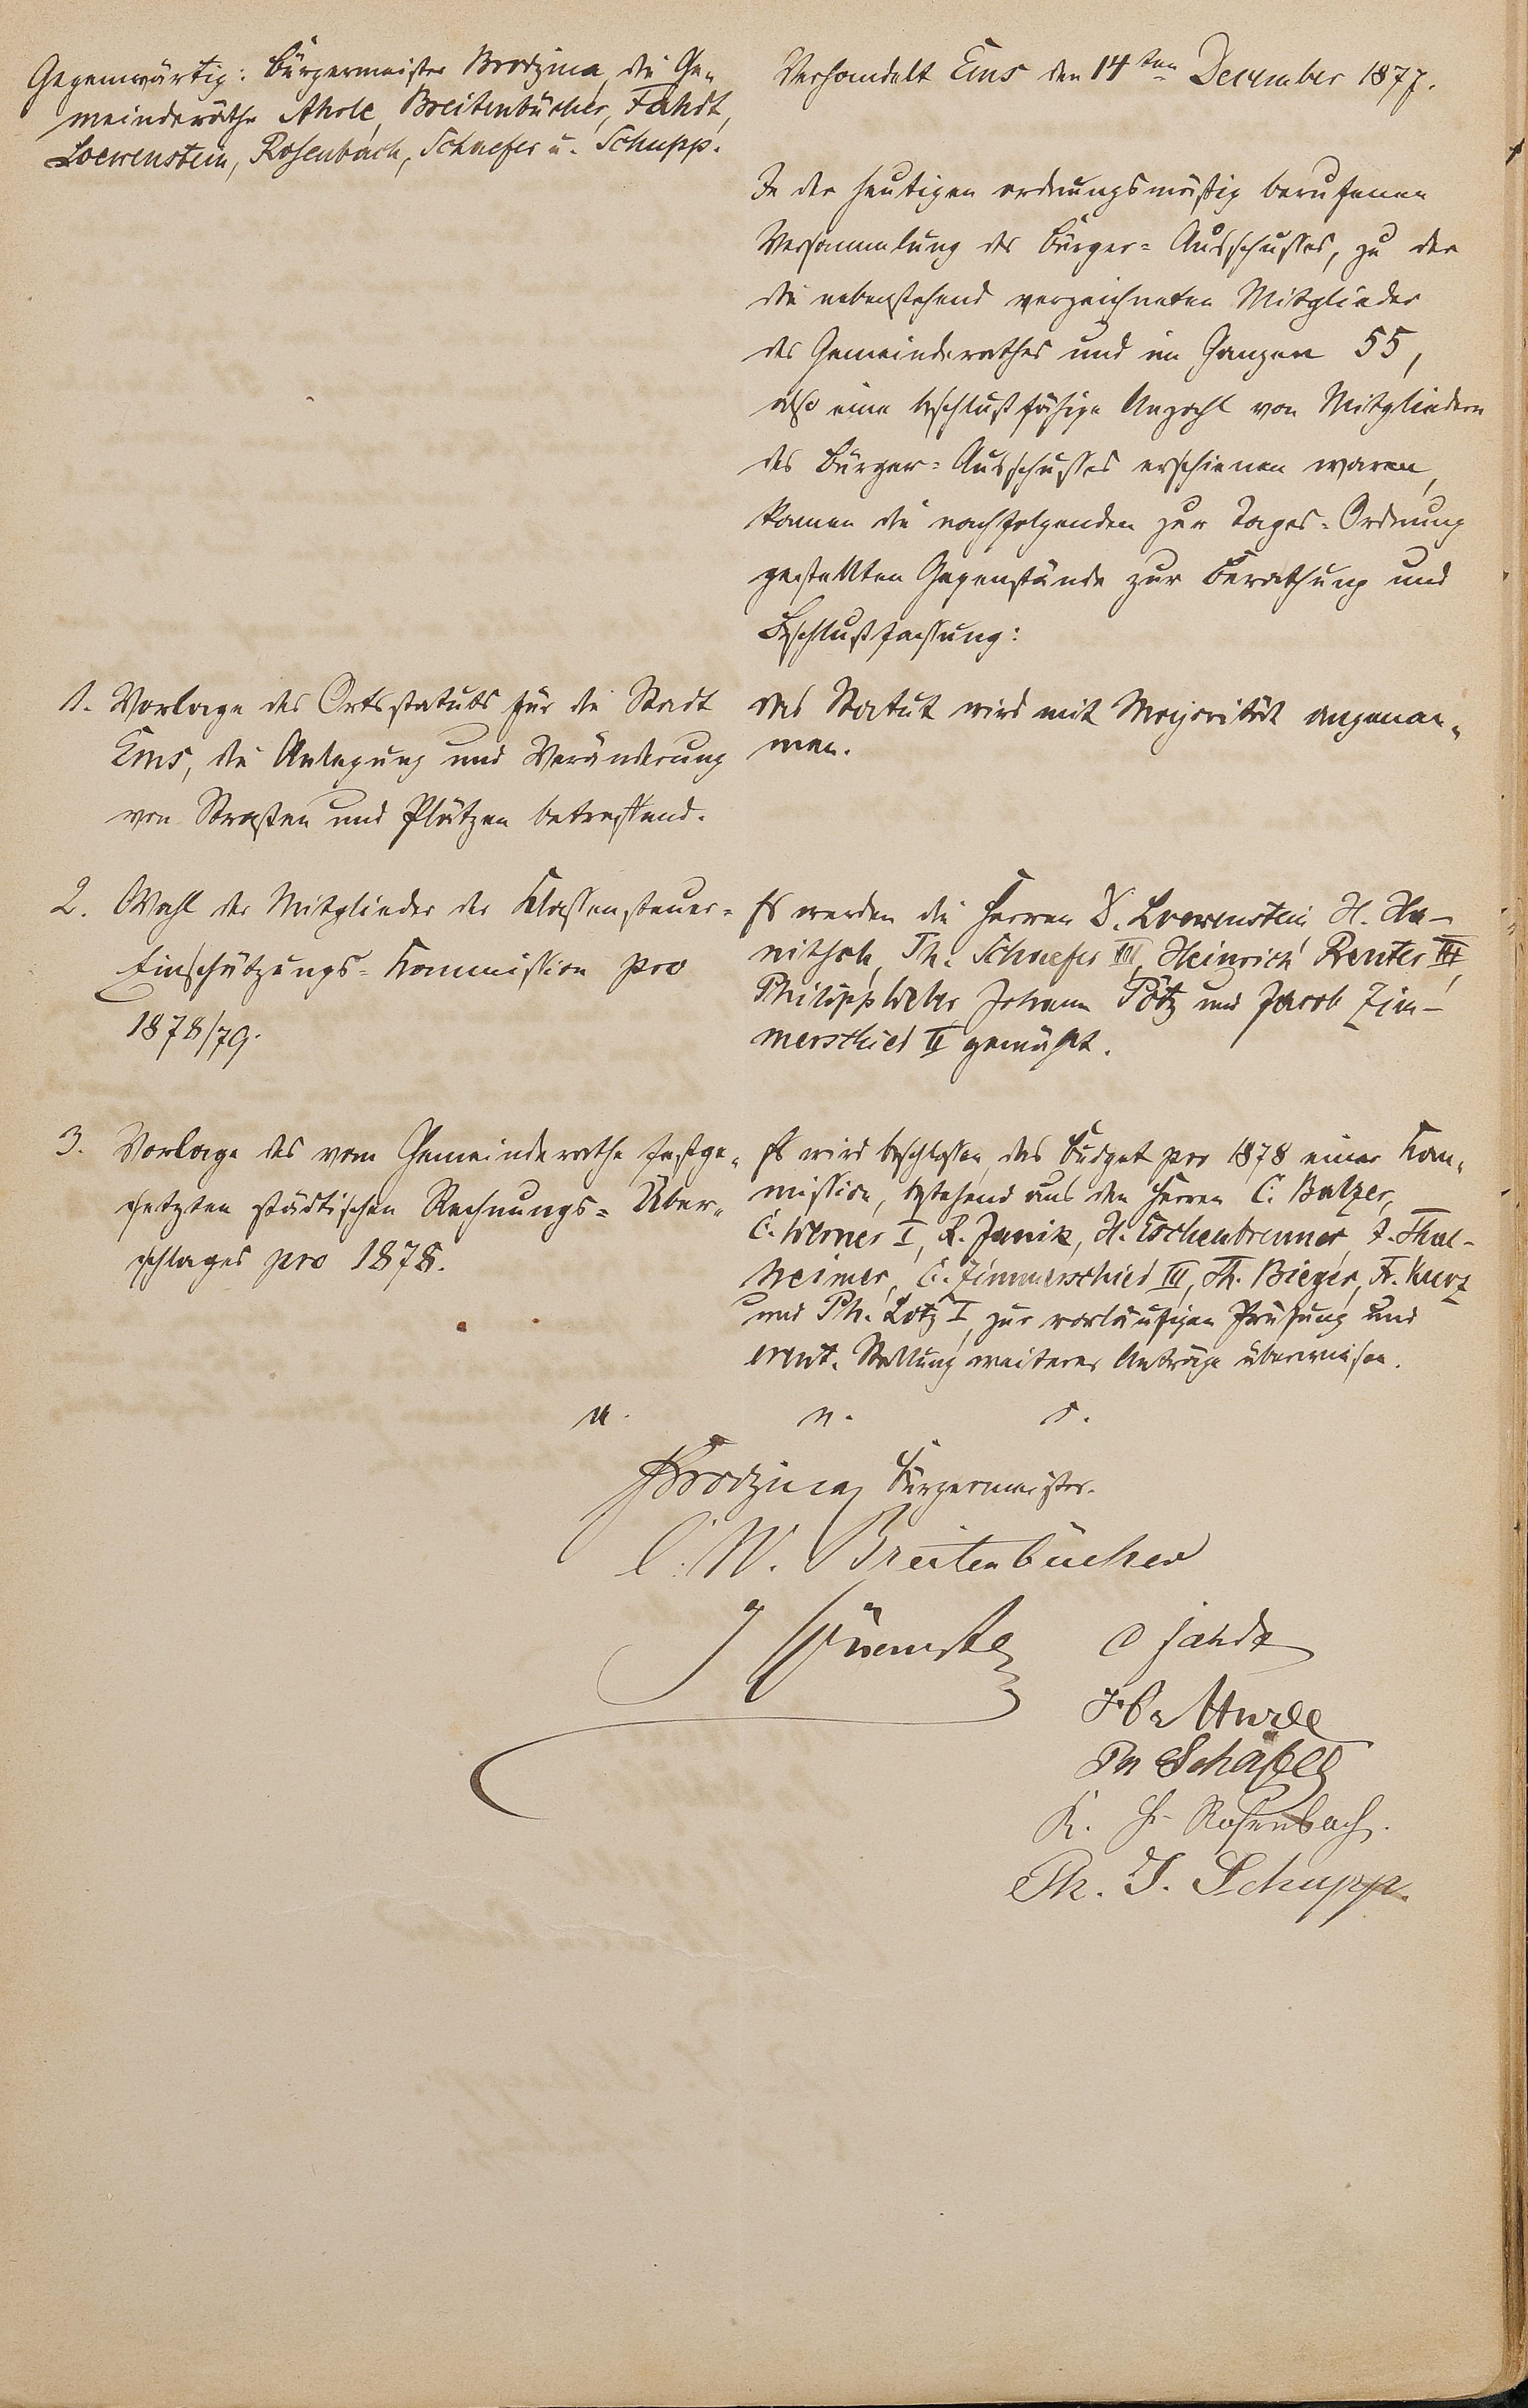 Gegenwärtig: Bürgermeister Brodzina, die Ge-
meinderäthe Ahrle, Breitenbücher, Fahdt,
Loewenstein, Rosenbach, Schaefer u. Schupp.
Verhandelt Ems den 14ten December 1877.
In der heutigen ordnungsmäßig berufenen
Versammlung des Bürger-Ausschusses, zu der
die nebenstehend verzeichneten Mitglieder
des Gemeinderathes und im Ganzen 55,
also eine beschlußfähige Anzahl von Mitgliedern
des Bürger-Ausschusses erschienen waren,
kamen die nachfolgenden zur Tages-Ordnung
gestellten Gegenstände zur Berathung und
Beschlußfassung:
1. Vorlage des Ortsstatuts für die Stadt
Ems, die Anlegung und Veränderung
von Straßen und Plätzen betreffend.
Das Statut wird mit Majorität angenom-
men.
2. Wahl der Mitglieder der Klassensteuer-
Einschätzungs-Kommission pro
1878/79.
Es werden die Herren D. Loewenstein H.
Th. Schaefer III, Heinrich Reuter III,
Philipp Weber Johann Pötz und Jacob Zim-
merschied II gewählt.
3. Vorlage des vom Gemeinderathe festge-
setzten städtischen Rechnungs-Über-
schlages pro 1878.
Es wird beschlossen, das Budget pro 1878 einer Kom-
mission, bestehend aus den Herren C. Balzer,
C. Werner I, R. Janik, H. Eschenbrenner, J. Thal-
heimer, C. Zimmerschied III, Th. Bieger, Fr. Kurz
und Ph. Lotz I, zur vorläufigen Prüfung und
event. Stellung weiterer Anträge überwiesen.
u. n. s.
Brodzina Bürgermeister.
C. W. Breitenbücher
C Fahdt
Ph Schäfer
K. Rosenbach.
Ph. J. Schupp.